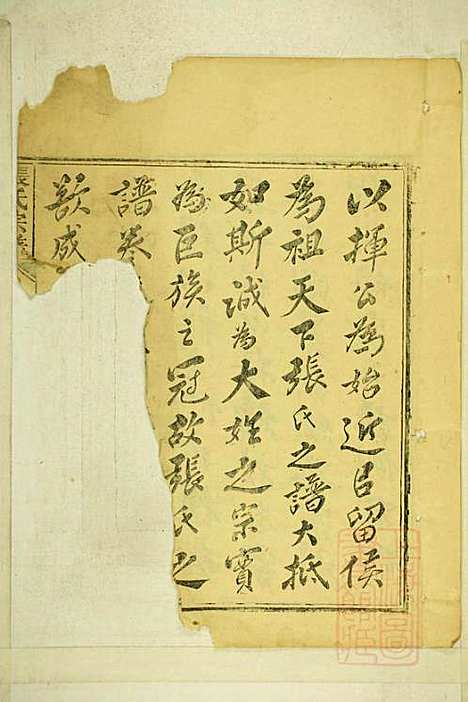 以揮公為始近以留侯
為祖天下張氏之譜大抵
如斯誠為大姓之宗實
為巨族之冠故張氏之
譜
歎成
張氏宗譜